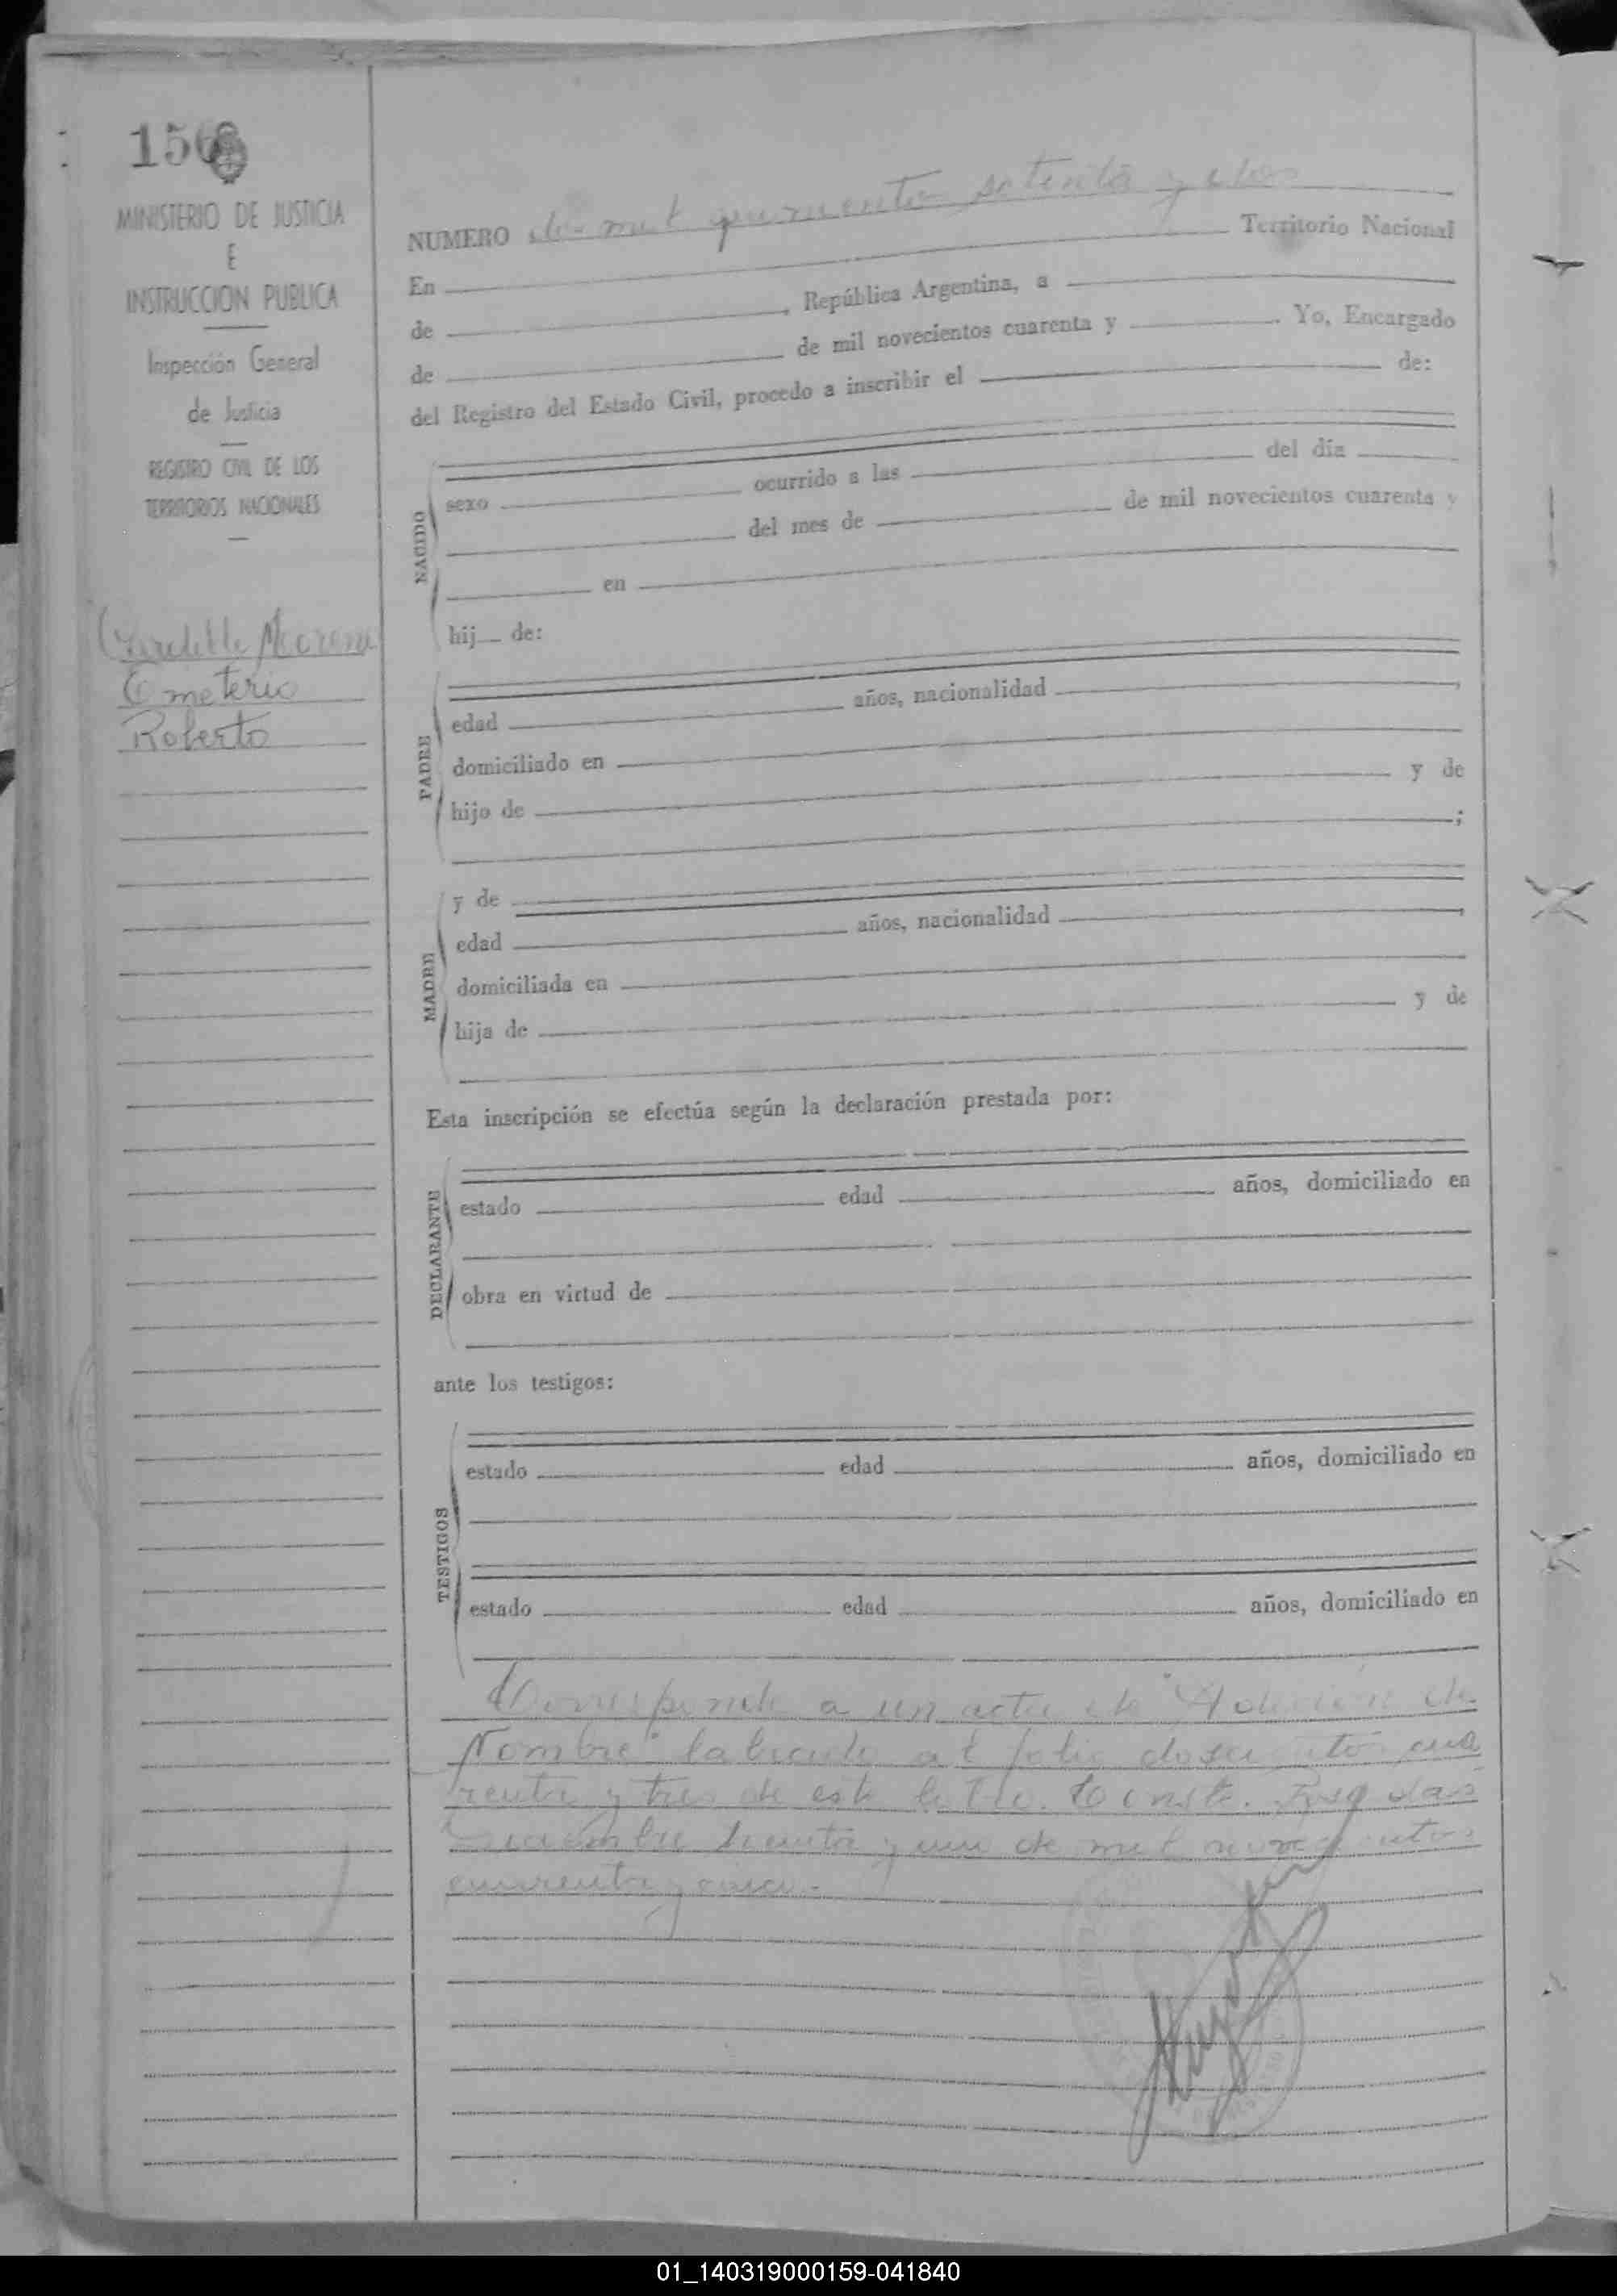 156
MINISTERIO DE JUSTICIA
E
INSTRUCCION PUBLICA
Inspección General
de Justicia
REGISTRO CIVIL DE LOS
TERRITORIOS NACIONALES
Emeterio
Roberto
NUMERO dos mil quinientos setenta y dos
En Territorio Nacional
de , República Argentina, a
de de mil novecientos cuarenta y Yo, Encargado
del Registro del Estado Civil, procedo a inscribir el de:
NACIDO
sexo ocurrido a las del día
del mes de de mil novecientos cuarenta y
en
hij de:
PADRE
edad años, nacionalidad ,
domiciliado en
hijo de y de
;
MADRE
y de
edad años, nacionalidad ,
domiciliada en
hija de y de
Esta inscripción se efectúa según la declaración prestada por:
DECLARANTE
estado edad años, domiciliado en
obra en virtud de
ante los testigos:
TESTIGOS
estado edad años, domiciliado en
estado edad años, domiciliado en
Corresponde a un acta de "Adición de
Nombre" labrada al folio doscientos cua
renta y tres de este libro. Conste. Posadas
Diciembre treinta y uno de mil novecientos
cuarenta y cinco.-
01_140319000159-041840